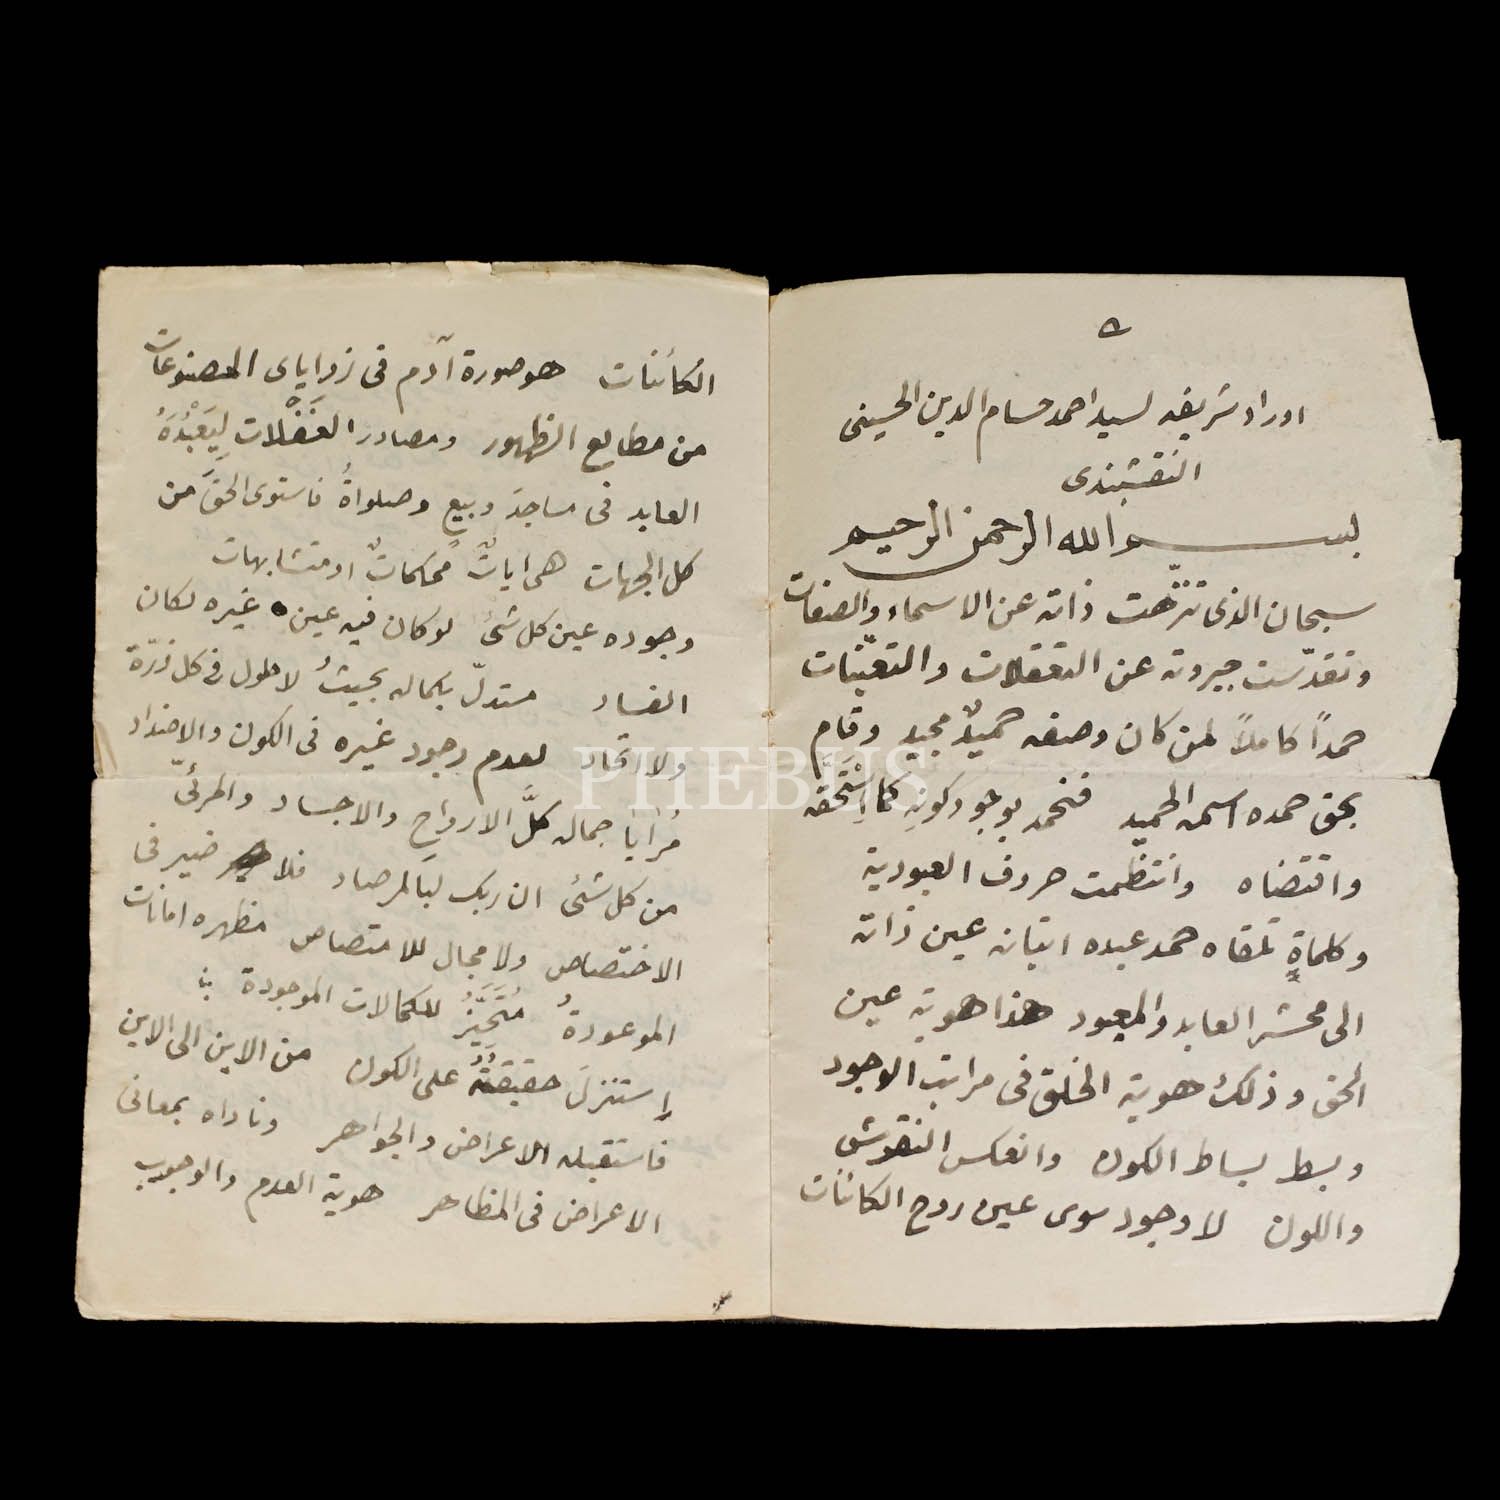 ٥
اوراد شريفه لسيد احمد حسام الدين الحسينى
النقشبندى
بسم الله الرحمن الرحيم
سبحان الذى تنزّهت ذاته عن الاسماء والصفات
وتقدّست جبروته عن التعقلات والتعيّنات
حمداً كاملاً لمن كان وصفه حميدٌ مجيد وقام
بحق حمده اسمه الحميد فنحمد بوجود كونهِ كما اسْتَحَقه
واقتضاه وانتظمت حروف العبودية
وكلماةٍ تلقاه حمد عبده اتيانه عين ذاته
الى محشر العابد والمعبود هذا هوية عين
الحق وذلك هوية الخلق فى مراتب الوجود
وبسط بساط الكون وانعكس النقوش
واللون لا وجود سوى عين روح الكائنات
الكائنات هو صورة آدم فى زواياى المصنوعات
من مطالع الظهور ومصادر الغَفَلات لِيَعْبُدَهُ
العابد فى مساجدَ وبيع وصلواةُ فاستوى الحقَّ من
كل الجهات هى اياتٌ مُحكماتٌ او متشابهات
وجوده عين كل شئ لو كان فيه عين غيره لكان
الفساد مستدلّ بكماله بحيثُ لا حلول فى كل ذرّة
ولا اتحاد لعدم وجود غيره فى الكون والاضداد
مَرايا جماله كلَّ الارواحِ والاجساد والمرئىّ
من كل شئ ان ربك لبالمرصاد فلا ضير فى
الاختصاص ولا مجال للامتصاص مظهره امانات
الموعودةُ مُتَحَيَّزُ للكمالات الموجودة
اِستنزلَ حقيقتُهُ على الكون من الاين الى الاين
فاستقبله الاعراض والجواهر وناداه بمعانى
الاعراض فى المظاهر هوية العدم والوجوب
PHEBUS